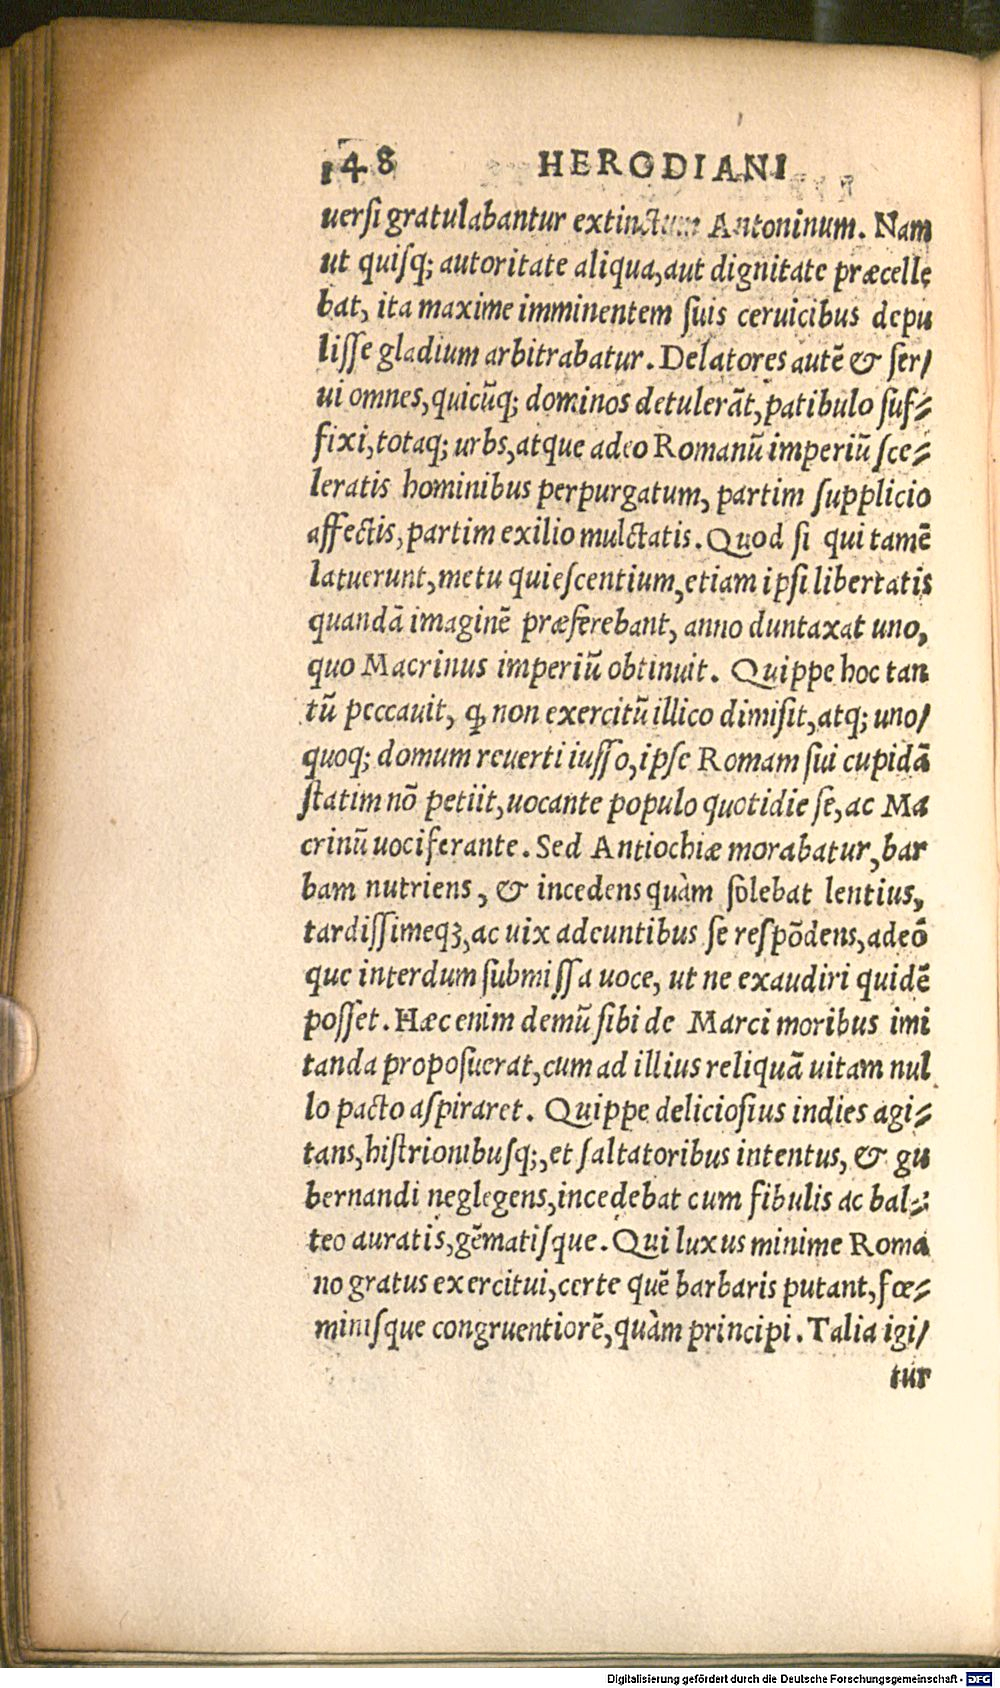 148 HERODIANI
uersi gratulabantur extinctum Antoninum. Nam
ut quisq; autoritate aliqua, aut dignitate præcellē
bat, ita maxime imminentem suis ceruicibus depu
lisse gladium arbitrabatur. Delatores autē & ser/
ui omnes, quicūq; dominos detulerāt, patibulo suf⸗
fixi, totaq; urbs, atque adeo Romanū imperiū sce⸗
leratis hominibus perpurgatum, partim supplicio
affectis, partim exilio mulctatis. Quod si qui tamē
latuerunt, metu quiescentium, etiam ipsi libertatis
quandā imaginē præferebant, anno duntaxat uno,
quo Macrinus imperiū obtinuit. Quippe hoc tan
tū peccauit, ꝙ non exercitū illico dimisit, atq; uno/
quoq; domum reuerti iusso, ipse Romam sui cupidā
statim nō petiit, uocante populo quotidie se, ac Ma
crinū uociferante. Sed Antiochiæ morabatur, bar
bam nutriens, & incedens quàm solebat lentius,
tardissimeqꝫ, ac uix adeuntibus se respōdens, adeō
que interdum submissa uoce, ut ne exaudiri quidē
posset. Hæc enim demū sibi de Marci moribus imi
tanda proposuerat, cum ad illius reliquā uitam nul
lo pacto aspiraret. Quippe deliciosius indies agi⸗
tans, histrionibusq;, et saltatoribus intentus, & gu
bernandi neglegens, incedebat cum fibulis ac bal⸗
teo auratis, gēmatisque. Qui luxus minime Roma
no gratus exercitui, certe quē barbaris putant, fœ⸗
minisque congruentiorē, quàm principi. Talia igi/
tur
Digitalisierung gefördert durch die Deutsche Forschungsgemeinschaft - DFG